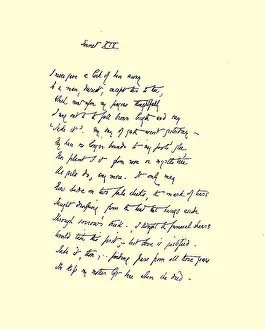 Sonnet XIX
I never gave a lock of hair away
To a man, dearest, except this to thee,
Which now upon my fingers thoughtfully
I ring out to the full brown length and say
'Take it'. My day of youth went yesterday –
My hair no longer bounds to my foot's glee
Nor plant I it from rose or myrtle tree
As girls do, any more. It only may
Now shade on two pale cheeks, the mark of tears
Taught drooping from the head that hangs aside
Through sorrow's trick. I thought the funeral shears
Would take this first; .. but Love is justified –
Take it, thou, .. finding pure from all those years
The kiss my mother left here when she died.